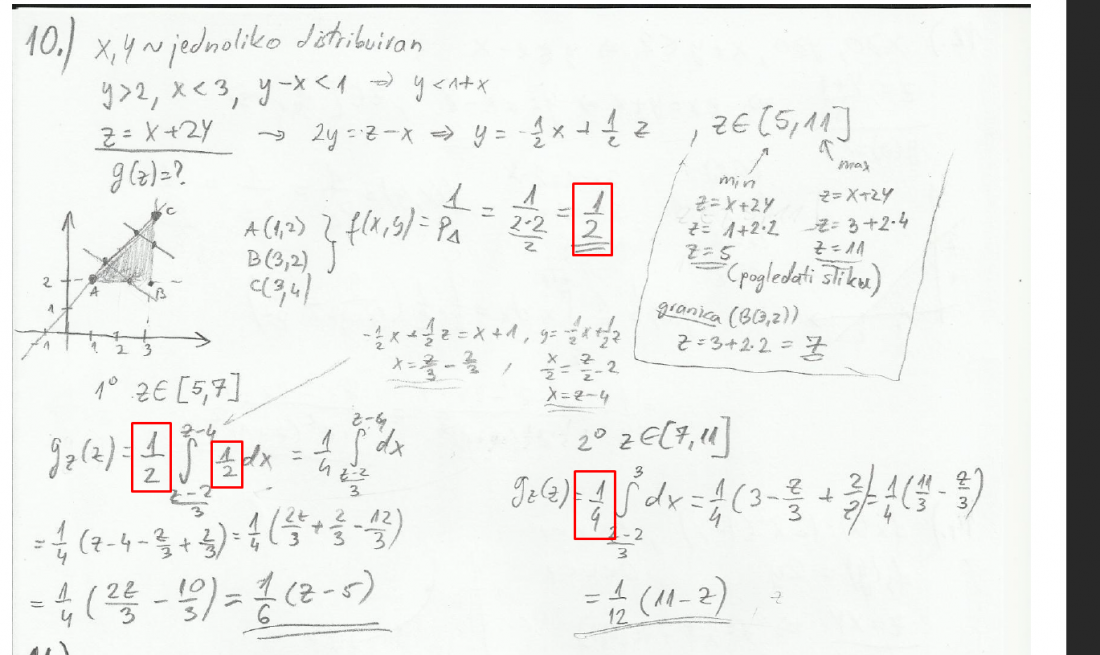 10.) x, y ~ jednoliko distribuiran
y>2, x<3, y-x<1 ⇒ y<1+x
z = x+2y → 2y = z-x ⇒ y = -1/2 x + 1/2 z , z∈[5,11]
g(z)=?
min
z=x+2y
z=1+2·2
z=5
max
z=x+2y
z=3+2·4
z=11
(pogledati sliku)
granica (B(3,2))
z=3+2·2=7
A(1,2)
B(3,2)
C(3,4)
f(x,y) = 1/P△ = 1/(2·2/2) = 1/2
C
2
A
B
1
-1 1 2 3
-1/2 x + 1/2 z = x+1 , y = -1/2 x + 1/2 z
x = z/3 - 2/3 , x/2 = z/2 - 2
x = z-4
1° z∈[5,7]
gz(z) = 1/2 ∫_{(z-2)/3}^{z-4} 1/2 dx = 1/4 ∫_{(z-2)/3}^{z-4} dx
= 1/4 (z-4-z/3+2/3) = 1/4 (2z/3+2/3-12/3)
= 1/4 (2z/3 - 10/3) = 1/6 (z-5)
2° z∈[7,11]
gz(z) = 1/4 ∫_{(z-2)/3}^{3} dx = 1/4 (3 - z/3 + 2/3) = 1/4 (11/3 - z/3)
= 1/12 (11-z)